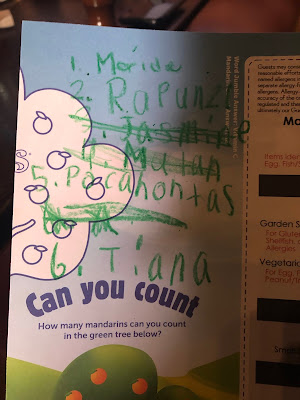 1. Merida
2. Rapunz
3. Jasmine
4. Mulan
5. Pacahontas
6. Tiana
Can you count
How many mandarins can you count
in the green tree below?
Word Jumble Answers:
Guests may con
reasonable efforts
named allergens
separate allergy-f
allergens. Allergy
accuracy of the
regulated and
ultimately our
Ma
Items Iden
Egg, Fish/
Garden S
For Glute
Shellfish,
Allergies
Vegetaria
For Egg,
Peanut/